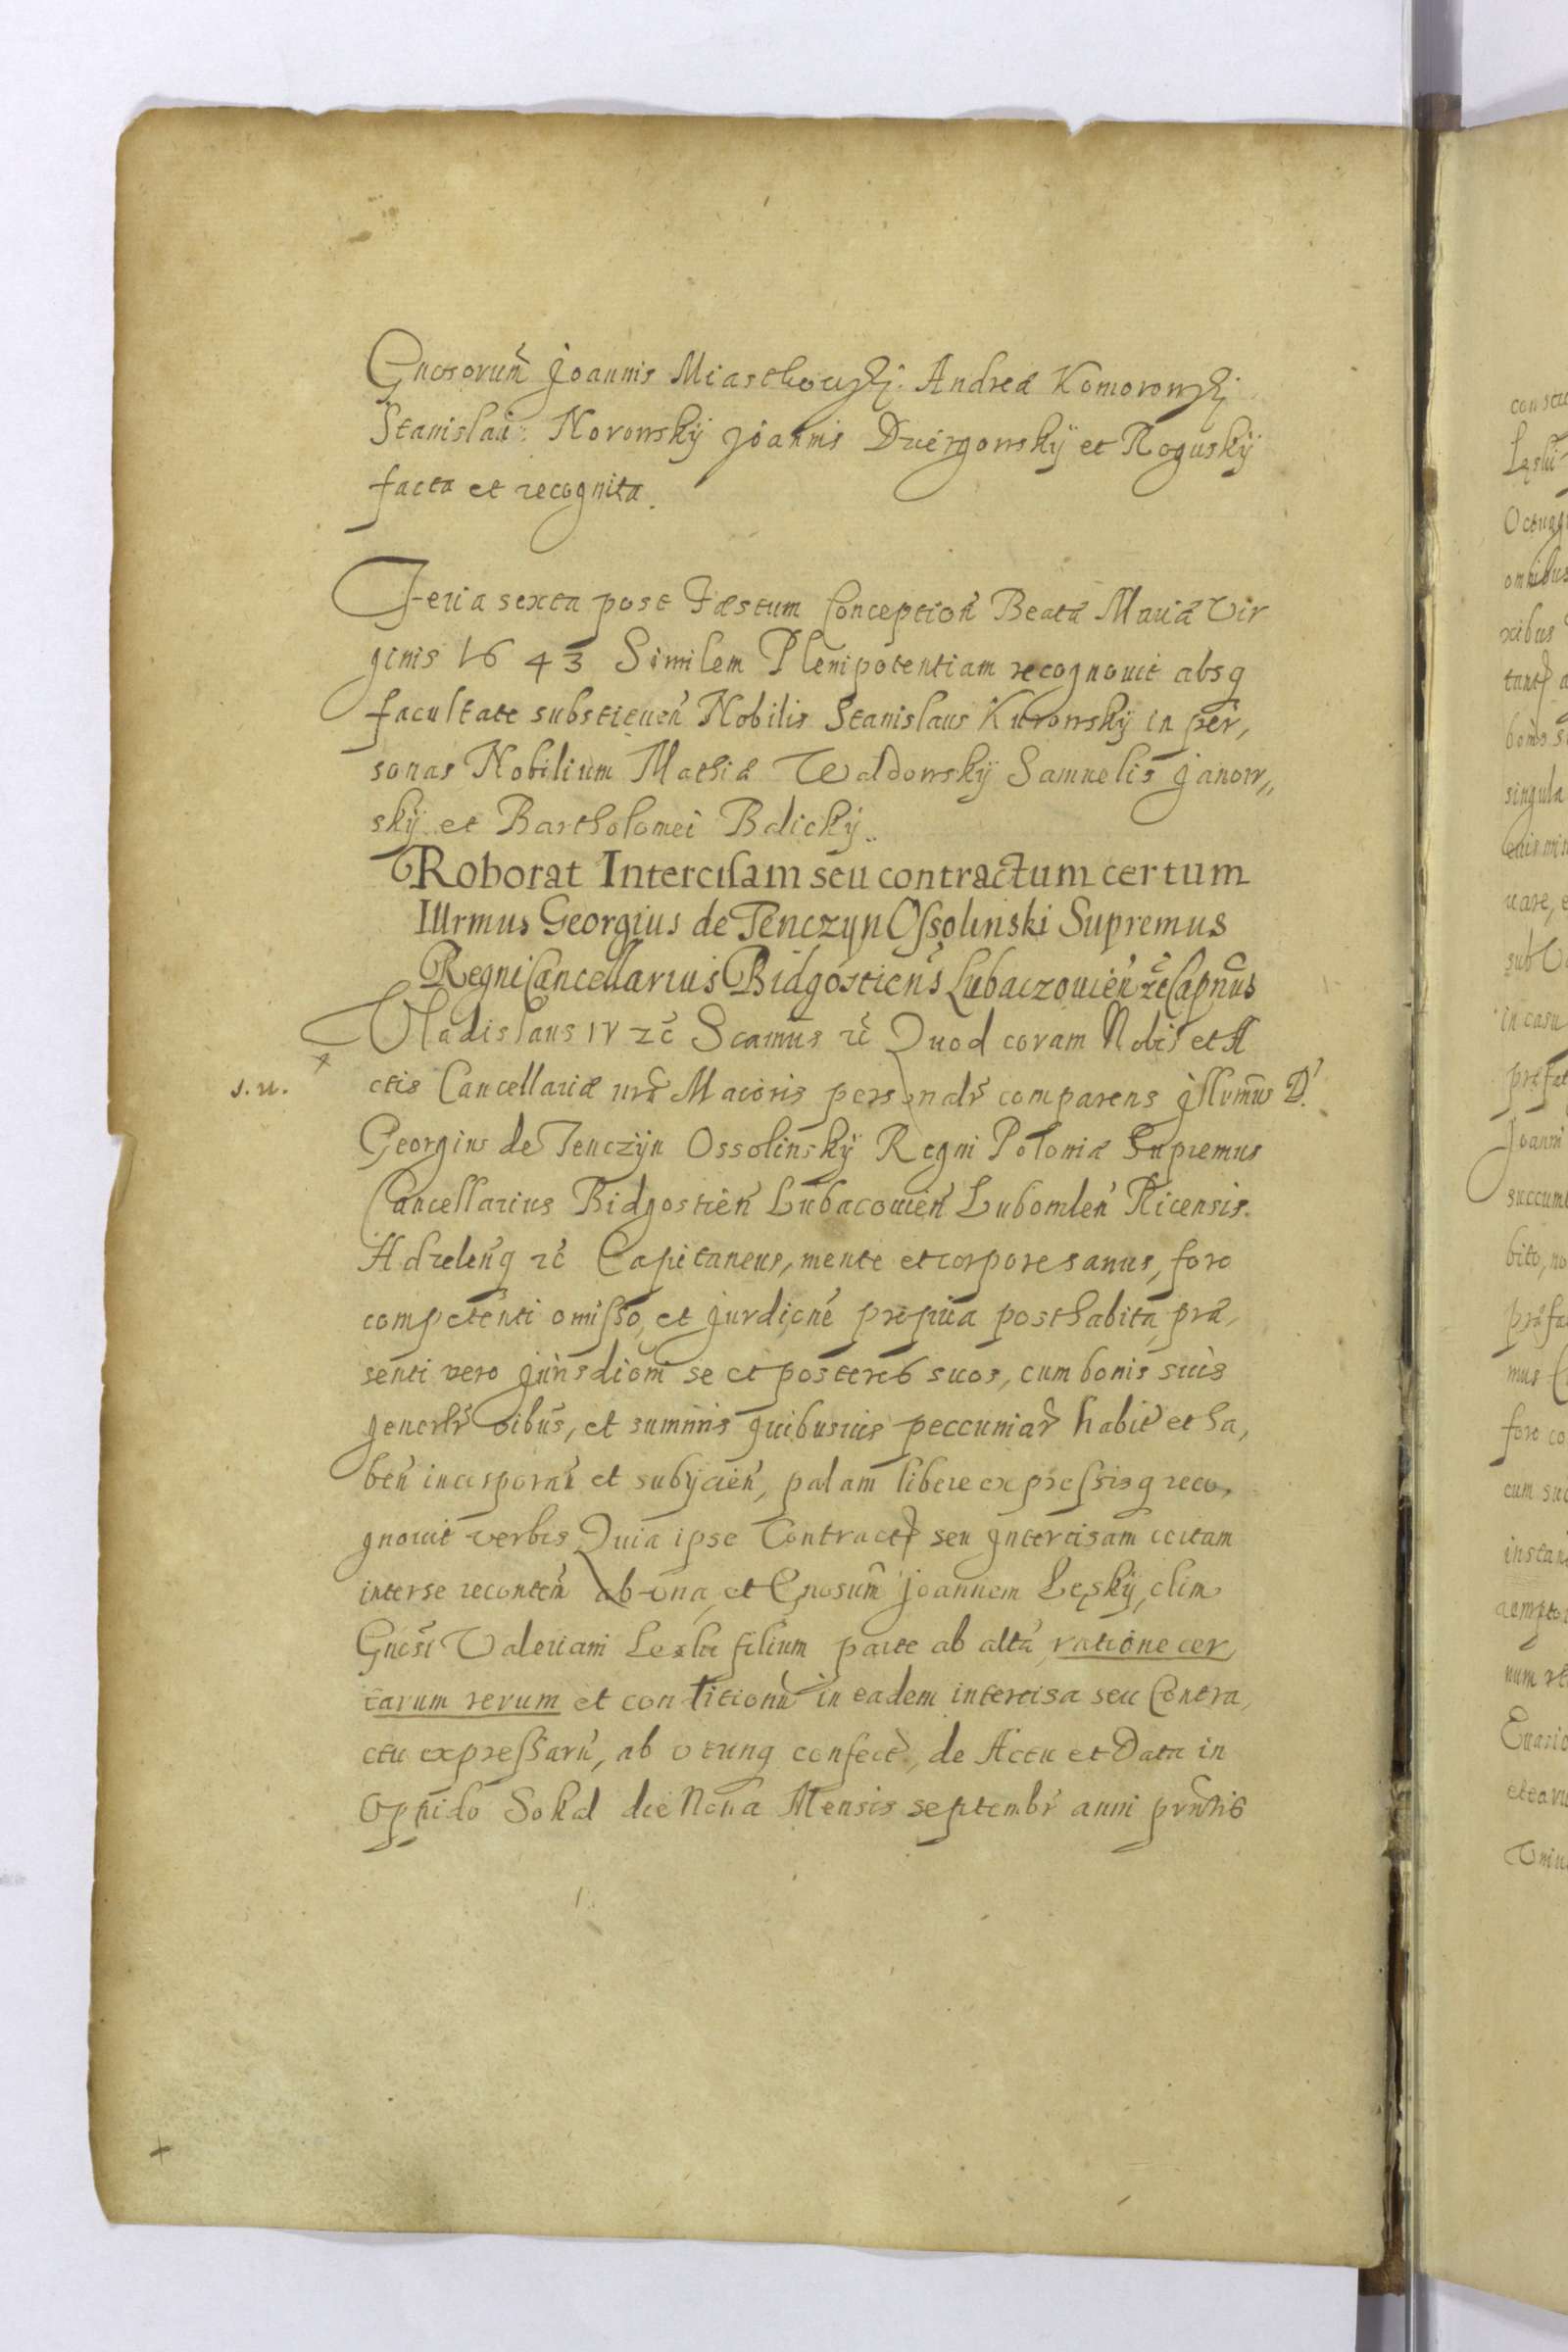 Gnosorum̃ Joannis Miastkowskj Andreæ Komorowskj
Stanislai Norowskÿ Joannis Dziergowskÿ et Roguskÿ
facta et recognita.
Feria sexta post Fæstum Conceptioñ Beatæ Mariæ Vir
ginis 1643 Similem Plenipotentiam recognouit absq
facultate substituen̄ Nobilis Stanislaus Kurowskÿ in per,
sonas Nobilium Mathiæ Waldowskÿ Samuelis Janow,,
skÿ et Bartholomei Belickÿ..
Roborat Intercisam seu contractum certum
Illrmus Georgius de Tenczyn Ossolinski Supremus
Regni Cancellarius Bidgostien̄s Lubaczouien̄ zc̄ Capn̄us
Vladislaus IV zc̄ Scamus zc̄ Quod coram Nobis et A
s.u. ctis Cancellariæ nræ̃ Maioris personalr̃ comparens Jllum̃us D.
Georgius de Tenczÿn Ossolinskÿ Regni Poloniæ Supremus
Cancellarius Bidgostien̄ Lubacouien̄ Lubomlen̄ Ricensis.
Adzelen̄q zc̄ Capitaneus, mente et corpore sanus, foro
competenti omisso, et Jurdicñe præpria posthabita, præ,
senti vero Jurisdioni se et posteros suos, cum bonis suis
generlr̃ oibus̃, et summis quibusuis peccuniar̃ habit̃ et ha,
ben̄ incorporan̄ et subÿcien̄, palam libere expressisq reco,
gnouit verbis Quia ipse Contract̃ seu Jntercisam ccitam
inter se reconten̄ ab una, et Gnosum̃ Joannem Lęskÿ, olim
Gnosi Valeriani Leski filium parte ab altã ratione cer,
tarum rerum et conditionũ in eadem intercisa seu Contra,
ctu expressarũ, ab utrinq confect̃, de Actu et Data in
Oppido Sokal die Nona Mensis septembr̃ anni prñtis